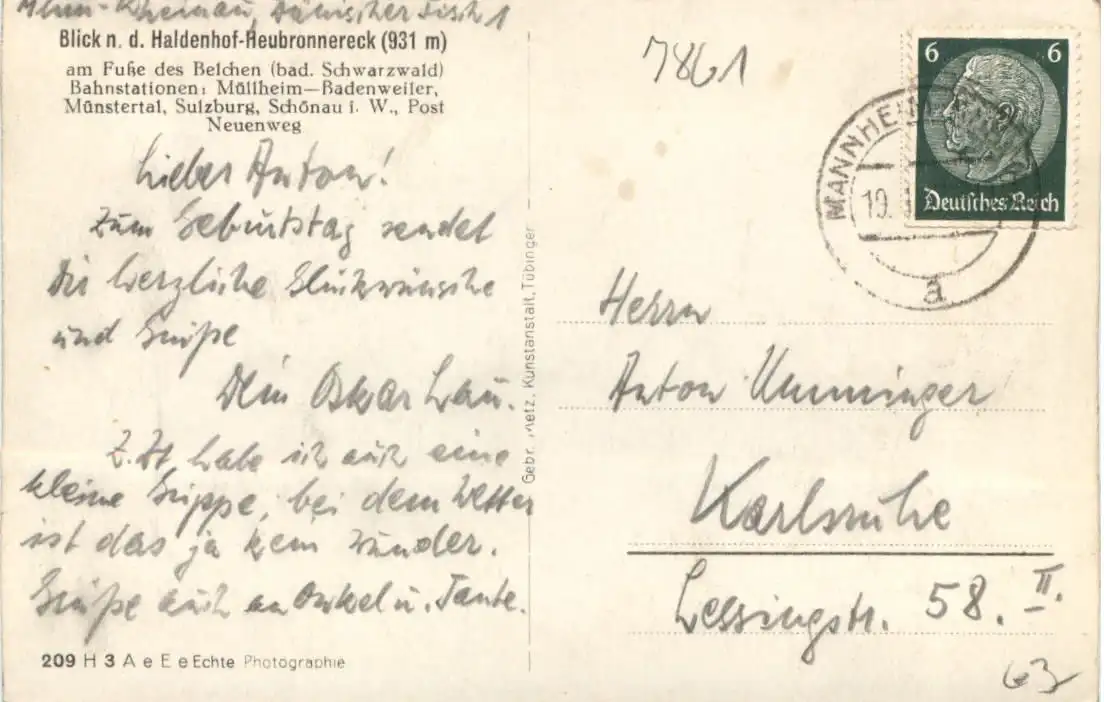 Mhm-Rheinau, Dänischer Tisch 1
Blick n. d. Haldenhof-Heubronnereck (931 m)
am Fuße des Belchen (bad. Schwarzwald)
Bahnstationen: Müllheim—Badenweiler,
Münstertal, Sulzburg, Schönau i. W., Post
Neuenweg
Lieber Anton!
Zum Geburtstag sendet
Dir herzliche Glückwünsche
und Grüße
Dein Oskar Lau.
Z. Zt habe ich auch eine
kleine Grippe, bei dem Wetter
ist das ja kein Wunder.
Grüße auch an Onkel u. Tante.
209 H 3 A e E e Echte Photographie
Gebr. Metz, Kunstanstalt, Tübingen
7861
6 6
Deutsches Reich
MANNHEIM
19.
a
Herrn
Anton Umminger
Karlsruhe
Lessingstr. 58. II.
63